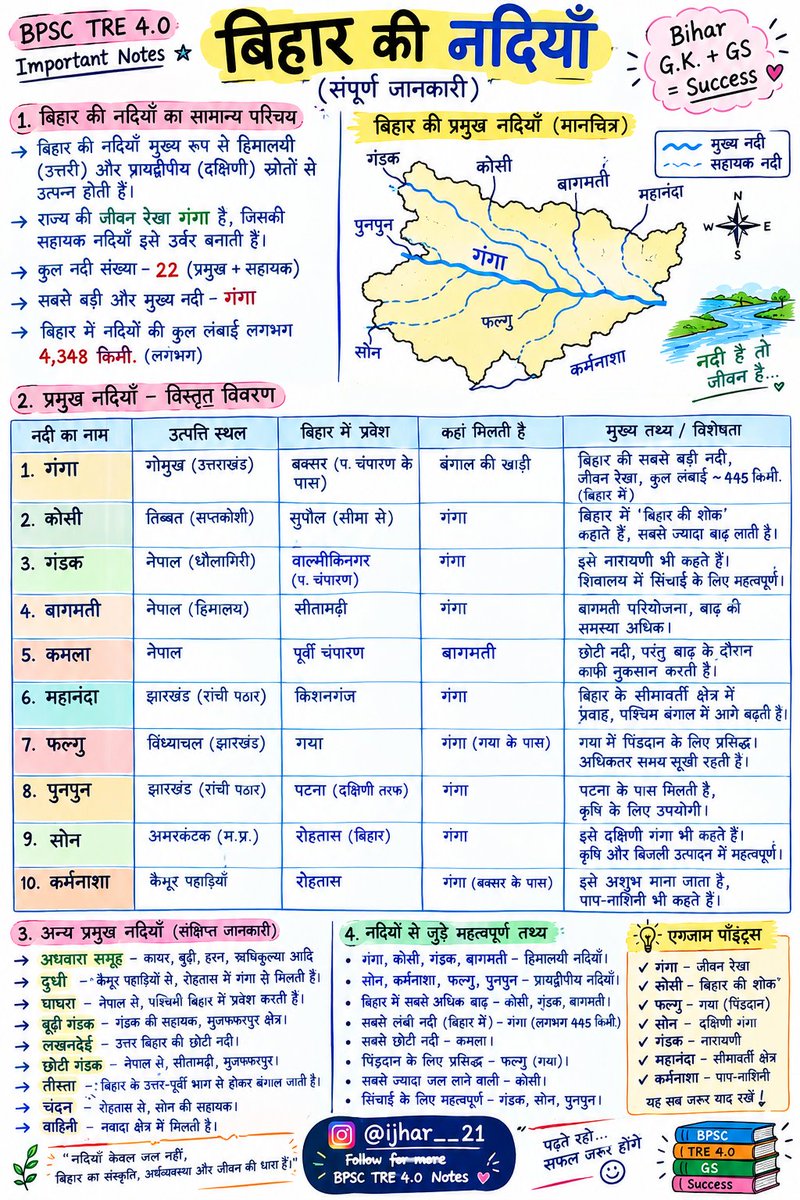 BPSC TRE 4.0
Important Notes
बिहार की नदियाँ
(संपूर्ण जानकारी)
Bihar
G.K. + GS
= Success
1. बिहार की नदियाँ का सामान्य परिचय
→ बिहार की नदियाँ मुख्य रूप से हिमालयी
(उत्तरी) और प्रायद्वीपीय (दक्षिणी) स्रोतों से
उत्पन्न होती हैं।
→ राज्य की जीवन रेखा गंगा है, जिसकी
सहायक नदियाँ इसे उर्वर बनाती हैं।
→ कुल नदी संख्या – 22 (प्रमुख + सहायक)
→ सबसे बड़ी और मुख्य नदी – गंगा
→ बिहार में नदियों की कुल लंबाई लगभग
4,348 किमी. (लगभग)
बिहार की प्रमुख नदियाँ (मानचित्र)
मुख्य नदी
सहायक नदी
गंडक
कोसी
बागमती
महानंदा
पुनपुन
गंगा
फल्गु
सोन
कर्मनाशा
N
W E
S
नदी है तो
जीवन है...
2. प्रमुख नदियाँ – विस्तृत विवरण
नदी का नाम उत्पत्ति स्थल बिहार में प्रवेश कहां मिलती है मुख्य तथ्य / विशेषता
1. गंगा गोमुख (उत्तराखंड) बक्सर (प. चंपारण के बंगाल की खाड़ी बिहार की सबसे बड़ी नदी,
पास) जीवन रेखा, कुल लंबाई ~ 445 किमी.
(बिहार में)
2. कोसी तिब्बत (सप्तकोशी) सुपौल (सीमा से) गंगा बिहार में 'बिहार की शोक'
कहाते हैं, सबसे ज्यादा बाढ़ लाती है।
3. गंडक नेपाल (धौलागिरी) वाल्मीकिनगर गंगा इसे नारायणी भी कहते हैं।
(प. चंपारण) शिवालय में सिंचाई के लिए महत्वपूर्ण।
4. बागमती नेपाल (हिमालय) सीतामढ़ी गंगा बागमती परियोजना, बाढ़ की
समस्या अधिक।
5. कमला नेपाल पूर्वी चंपारण बागमती छोटी नदी, परंतु बाढ़ के दौरान
काफी नुकसान करती है।
6. महानंदा झारखंड (रांची पठार) किशनगंज गंगा बिहार के सीमावर्ती क्षेत्र में
प्रवाह, पश्चिम बंगाल में आगे बढ़ती हैं।
7. फल्गु विंध्याचल (झारखंड) गया गंगा (गया के पास) गया में पिंडदान के लिए प्रसिद्ध।
अधिकतर समय सूखी रहती हैं।
8. पुनपुन झारखंड (रांची पठार) पटना (दक्षिणी तरफ) गंगा पटना के पास मिलती है,
कृषि के लिए उपयोगी।
9. सोन अमरकंटक (म.प्र.) रोहतास (बिहार) गंगा इसे दक्षिणी गंगा भी कहते हैं।
कृषि और बिजली उत्पादन में महत्वपूर्ण।
10. कर्मनाशा कैमूर पहाड़ियाँ रोहतास गंगा (बक्सर के पास) इसे अशुभ माना जाता है,
पाप-नाशिनी भी कहते हैं।
3. अन्य प्रमुख नदियाँ (संक्षिप्त जानकारी)
→ अधवारा समूह – कायर, बुढ़ी, हरन, आदि
→ दुधी – कैमूर पहाड़ियों से, रोहतास में गंगा से मिलती हैं।
→ घाघरा – नेपाल से, पश्चिमी बिहार में प्रवेश करती हैं।
→ बूढ़ी गंडक – गंडक की सहायक, मुजफ्फरपुर क्षेत्र।
→ लखनदेई – उत्तर बिहार की छोटी नदी।
→ छोटी गंडक – नेपाल से, सीतामढ़ी, मुजफ्फरपुर।
→ तीस्ता – बिहार के उत्तर-पूर्वी भाग से होकर बंगाल जाती है।
→ चंदन – रोहतास से, सोन की सहायक।
→ वाहिनी – नवादा क्षेत्र में मिलती है।
4. नदियों से जुड़े महत्वपूर्ण तथ्य
• गंगा, कोसी, गंडक, बागमती – हिमालयी नदियाँ।
• सोन, कर्मनाशा, फल्गु, पुनपुन – प्रायद्वीपीय नदियाँ।
• बिहार में सबसे अधिक बाढ़ – कोसी, गंडक, बागमती।
• सबसे लंबी नदी (बिहार में) – गंगा (लगभग 445 किमी.)
• सबसे छोटी नदी – कमला।
• पिंडदान के लिए प्रसिद्ध – फल्गु (गया)।
• सबसे ज्यादा जल लाने वाली – कोसी।
• सिंचाई के लिए महत्वपूर्ण – गंडक, सोन, पुनपुन।
एगजाम पॉइंट्स
✓ गंगा – जीवन रेखा
✓ सोसी – बिहार की शोक"
✓ फल्गु – गया (पिंडदान)
✓ सोन – दक्षिणी गंगा
✓ गंडक – नारायणी
✓ महानंदा – सीमावर्ती क्षेत्र
✓ कर्मनाशा – पाप-नाशिनी
यह सब जरूर याद रखें !
"नदियाँ केवल जल नहीं,
बिहार का संस्कृति, अर्थव्यवस्था और जीवन की धारा हैं।"
@ijhar__21
Follow for more
BPSC TRE 4.0 Notes
पढ़ते रहो...
सफल जरूर होंगे
BPSC
TRE 4.0
GS
Success